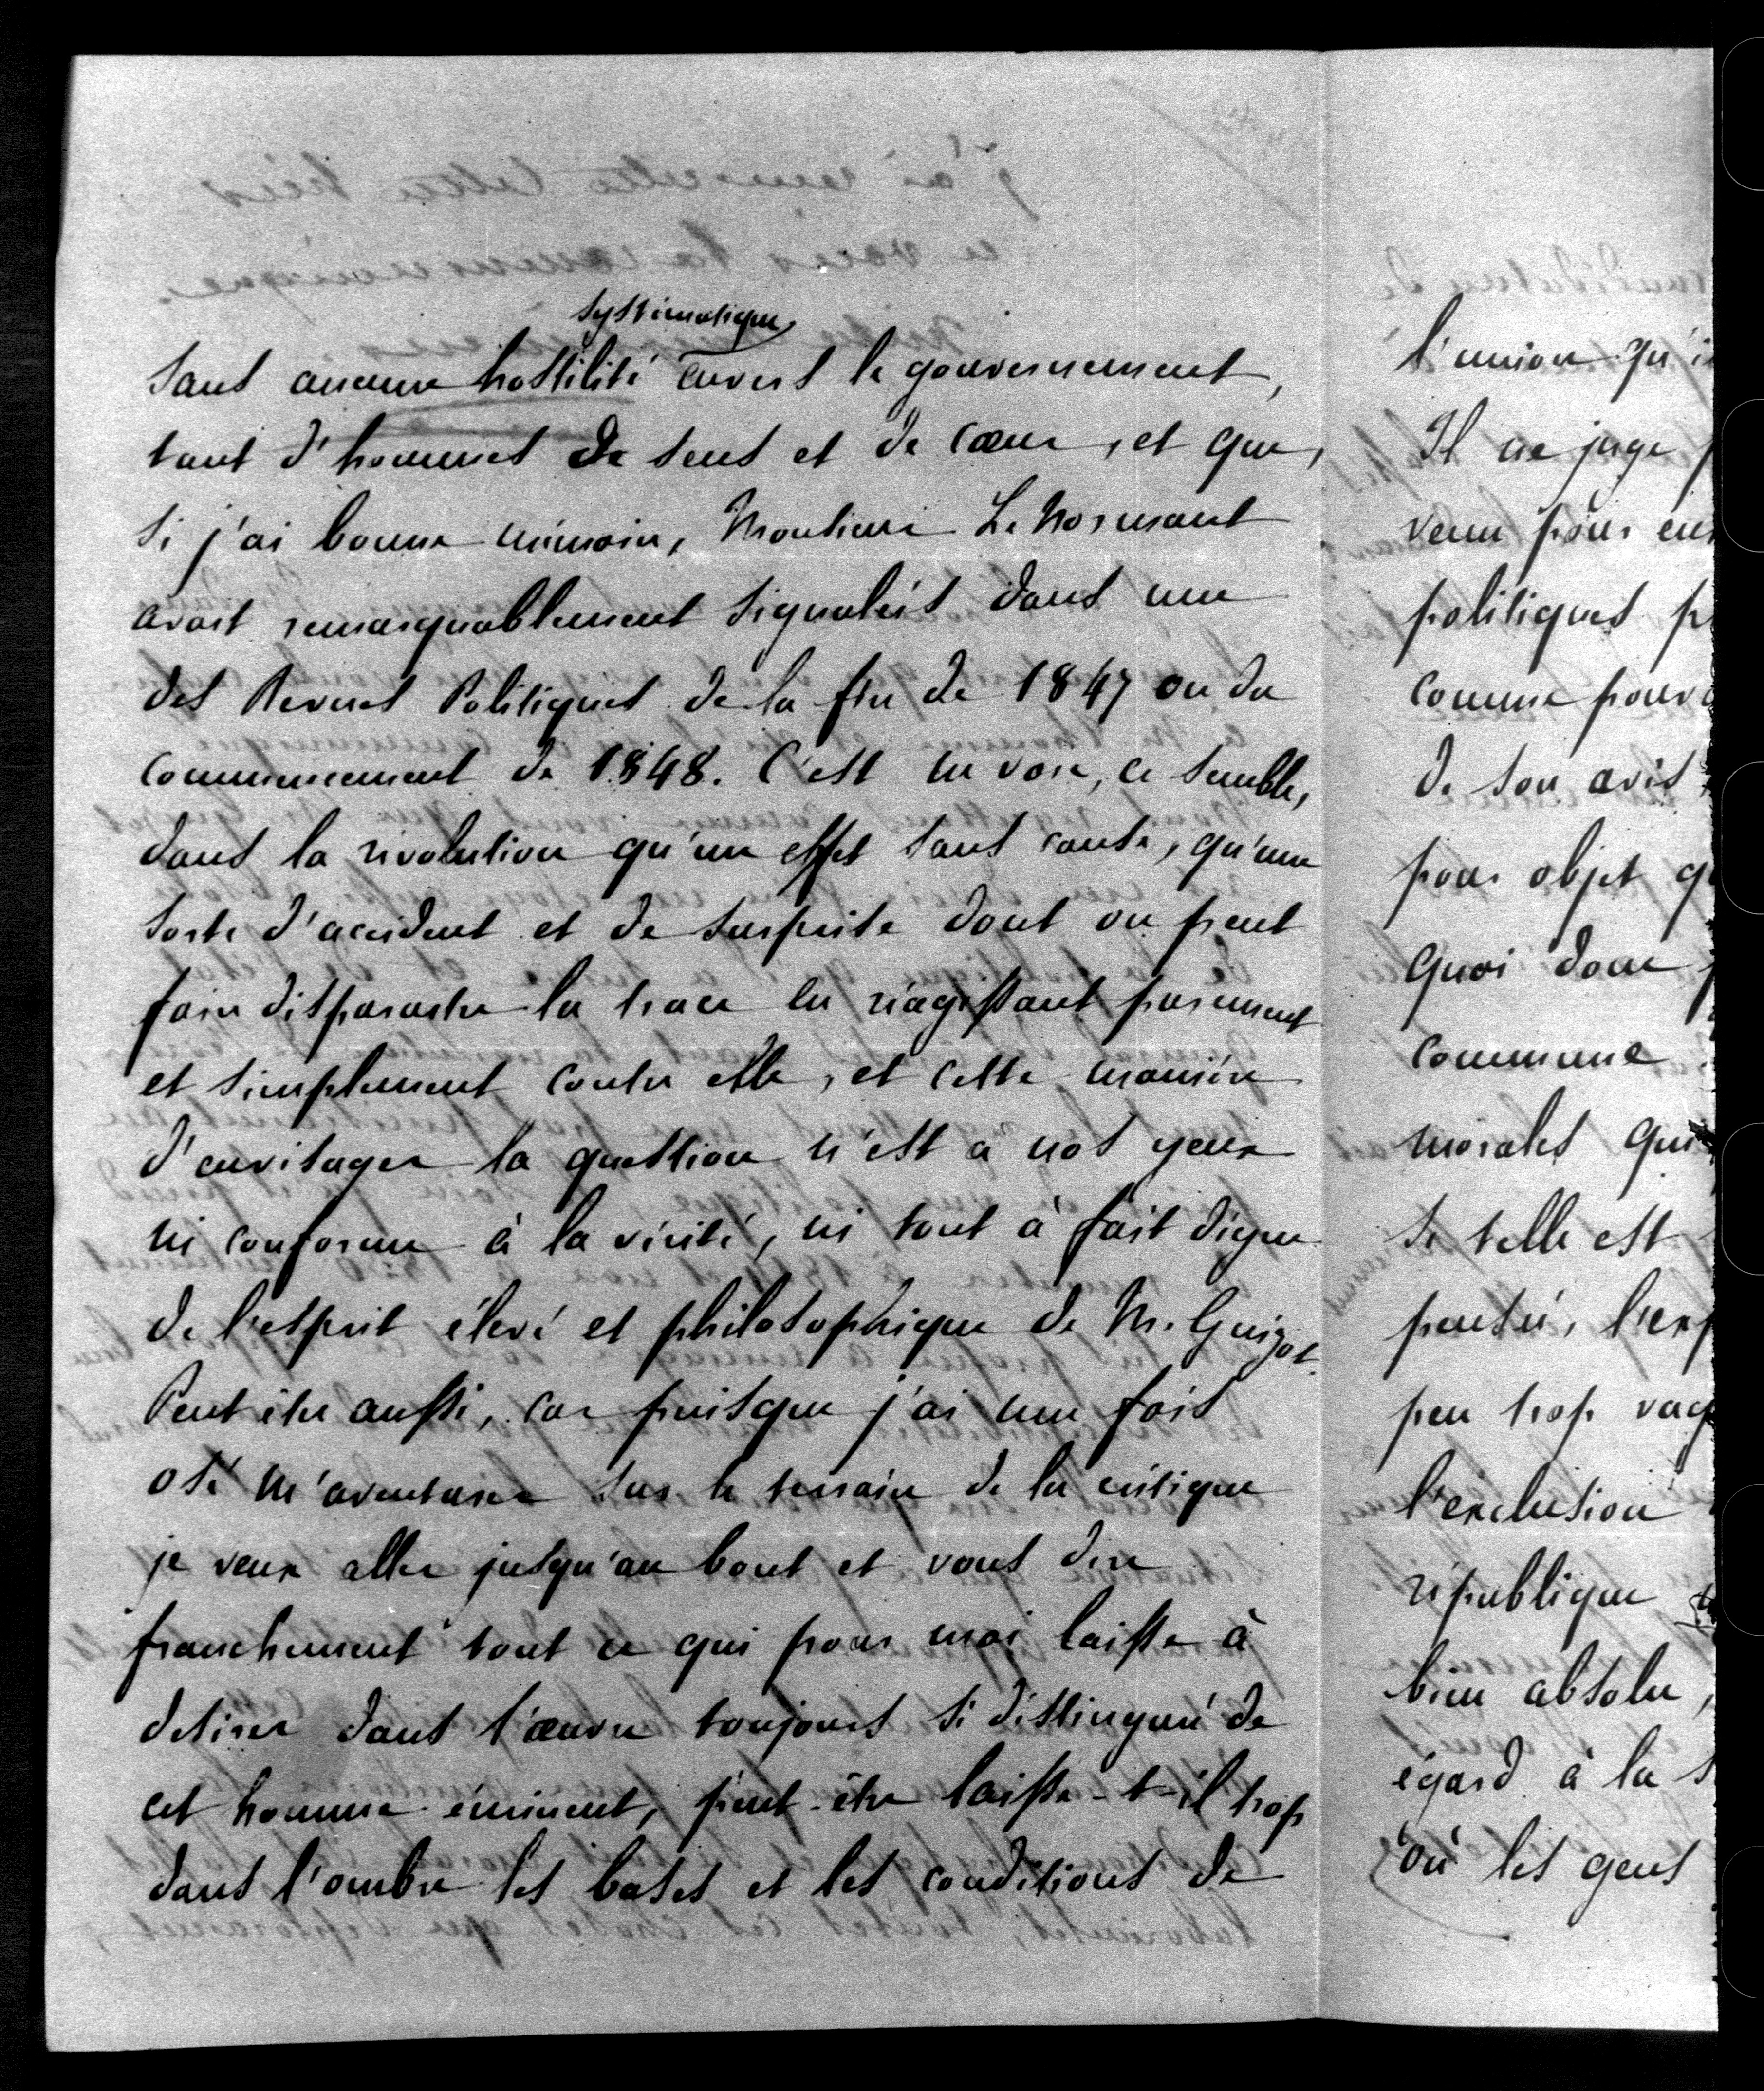 systématique
sans aucune hostilité envers le gouvernement,
tant d'hommes de sens et de cœur, et que,
si j'ai bonne mémoire, Monsieur Lenormant
avait remarquablement signalés dans une
des Revues Politiques de la fin de 1847 ou du
commencement de 1848. C'est ne voir, ce semble,
dans la révolution qu'un effet sans cause, qu'une
sorte d'accident et de surprise dont on peut
faire disparaitre la trace en réagissant purement
et simplement contre elle, et cette manière
d'envisager la question n'est à nos yeux
ni conforme à la vérité, ni tout à fait digne
de l'esprit élevé et philosophique de M. Guizot.
Peut être aussi, car puisque j'ai une fois
osé m'aventurer sur le terrain de la critique
je veux aller jusqu'au bout et vous dire
franchement tout ce qui pour moi laisse à
désirer dans l'œuvre toujours si distinguée de
cet homme éminent, peut-être laisse-t-il trop
dans l'ombre les bases et les conditions de
l'union qu'i
Il ne juge p
venu pour en
politiques p
comme pouv
de son avis
pour objet q
Quoi donc
commune
morales qui
si telle est
pensée, l'exp
peu trop vag
l'exclusion
république
bien absolu,
égard à la s
où les gens